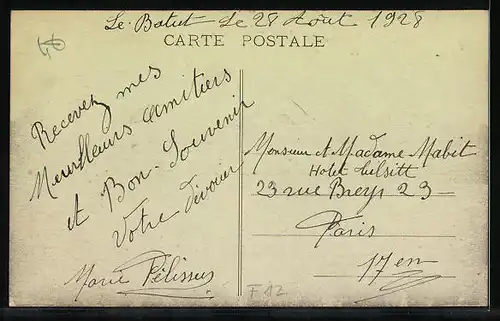 Le Batut Le 28 Août 1928
CARTE POSTALE
Recevez mes
Meuilleurs amitiers
et Bon Souvenir
Votre Dévouer
Marie Pélissier
Monsieur et Madame Mabit
Hotel
23 rue Breys 23
Paris
17 em
F 12